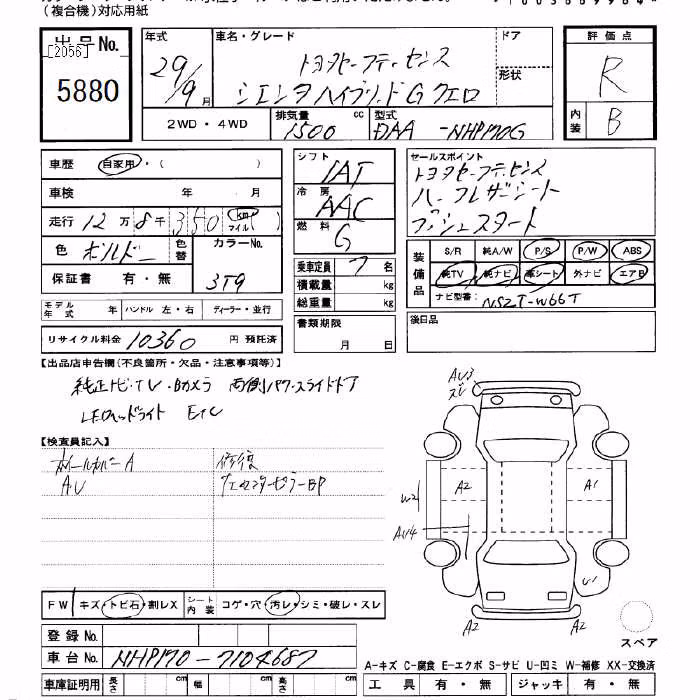 (複合機)対応用紙
出品No.
[2056]
5880
年式
29/9月
車名・グレード
トヨタセーフティセンス
シエンタハイブリッドG クエロ
ドア
形状
評価点
R
内装
B
2WD・4WD
排気量
1500
cc
型式
DAA-NHP170G
車歴
自家用・( )
車検 年 月
走行 12万8千350 km マイル ( )
色 ボルドー
色替
カラーNo.
3T9
保証書 有・無
モデル年式 年 ハンドル 左・右 ディーラー・並行
リサイクル料金 10360 円 預託済
シフト
IAT
冷房
AAC
燃料
G
乗車定員 7 名
積載量 kg
総重量 kg
書類期限
月 日
セールスポイント
トヨタセーフティセンス
ハーフレザーシート
プッシュスタート
装備品
S/R 純A/W P/S P/W ABS
純TV 純ナビ 革シート 外ナビ エアB
ナビ型番 NSZT-W66T
後日品
【出品店申告欄(不良箇所・欠品・注意事項等)】
純正ナビ・TV・Bカメラ 両側パワースライドドア
LEDヘッドライト ETC
【検査員記入】
ホイールカバーA
AU
修復
FW キズ・トビ石・割レX
シート内装 コゲ・穴・汚レ・シミ・破レ・スレ
登録No.
車台No. NHP170-7104687
車庫証明用 長さ cm 幅 cm 高さ cm
AU3
ズレ
W2
A2
A1
AU4
U1
A2
A2
スペア
A-キズ C-腐食 E-エクボ S-サビ U-凹ミ W-補修 XX-交換済
工具 有・無 ジャッキ 有・無